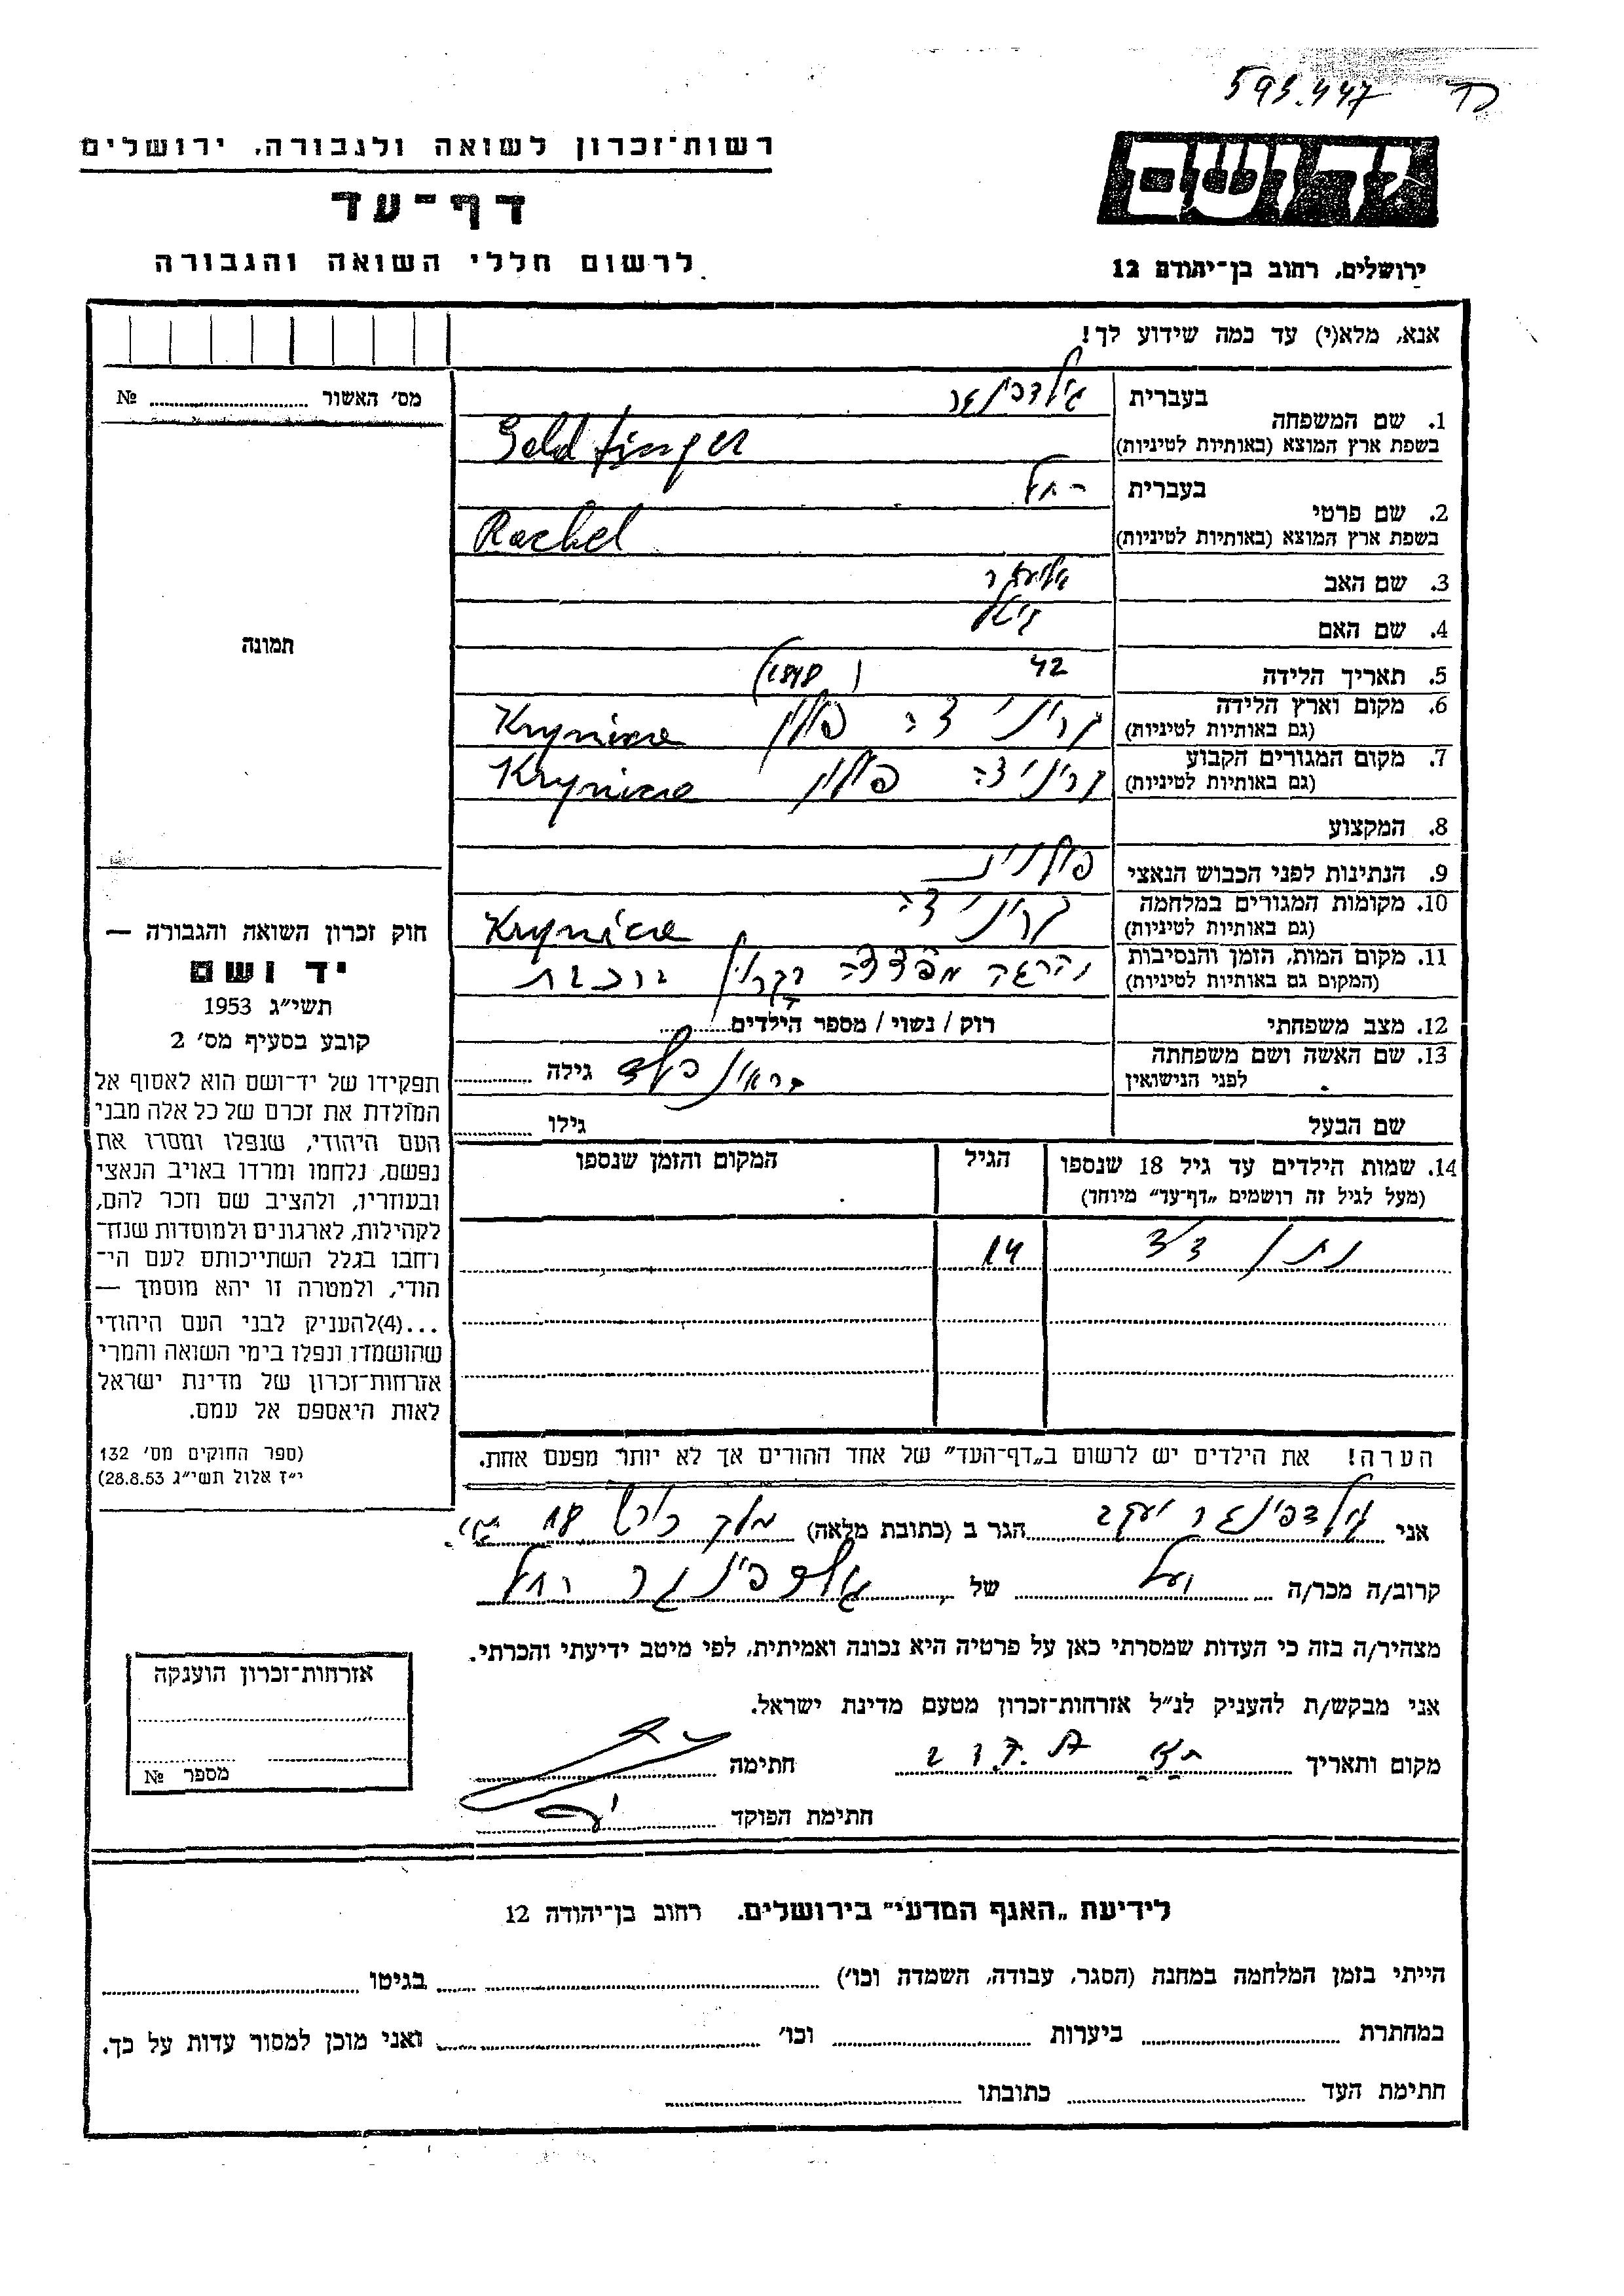 593.447
רשות־זכרון לשואה ולגבורה, ירושלים
דף־עד
לרשום חללי השואה והגבורה
ידושם
ירושלים, רחוב בן־יהודה 12
אנא, מלא(י) עד כמה שידוע לך!
מס׳ האשור № 
1. שם המשפחה
בעברית
בשפת ארץ המוצא (באותיות לטיניות)
Goldfinger
2. שם פרטי
בעברית רחל
בשפת ארץ המוצא (באותיות לטיניות)
Rachel
3. שם האב אליעזר
4. שם האם
5. תאריך הלידה 42 (1898)
6. מקום וארץ הלידה
(גם באותיות לטיניות)
קריניצה פולין Krynica
7. מקום המגורים הקבוע
(גם באותיות לטיניות)
קריניצה פולין Krynica
8. המקצוע
9. הנתינות לפני הכבוש הנאצי פולנית
10. מקומות המגורים במלחמה
(גם באותיות לטיניות)
קריניצה Krynica
11. מקום המות, הזמן והנסיבות
(המקום גם באותיות לטיניות)
נהרגה
12. מצב משפחתי רוק / נשוי / מספר הילדים
13. שם האשה ושם משפחתה
לפני הנישואין
גילה
שם הבעל גילו
14. שמות הילדים עד גיל 18 שנספו
(מעל לגיל זה רושמים „דף־עד״ מיוחד)
הגיל
המקום והזמן שנספו
נתן 14
הערה! את הילדים יש לרשום ב„דף־העד״ של אחד ההורים אך לא יותר מפעם אחת.
אני גולדפינגר יעקב הגר ב (כתובת מלאה) 18
קרוב/ה מכר/ה של גולדפינגר רחל
מצהיר/ה בזה כי העדות שמסרתי כאן על פרטיה היא נכונה ואמיתית, לפי מיטב ידיעתי והכרתי.
אני מבקש/ת להעניק לנ״ל אזרחות־זכרון מטעם מדינת ישראל.
מקום ותאריך חתימה
חתימת הפוקד
תמונה
חוק זכרון השואה והגבורה —
יד ושם
תשי״ג 1953
קובע בסעיף מס׳ 2
תפקידו של יד־ושם הוא לאסוף אל
המולדת את זכרם של כל אלה מבני
העם היהודי, שנפלו ומסרו את
נפשם, נלחמו ומרדו באויב הנאצי
ובעוזריו, ולהציב שם וזכר להם,
לקהילות, לארגונים ולמוסדות שנח־
רבו בגלל השתייכותם לעם הי־
הודי, ולמטרה זו יהא מוסמך —
...(4)להעניק לבני העם היהודי
שהושמדו ונפלו בימי השואה והמרי
אזרחות־זכרון של מדינת ישראל
לאות היאספם אל עמם.
(ספר החוקים מס׳ 132
י״ז אלול תשי״ג 28.8.53)
אזרחות־זכרון הוענקה
מספר №
לידיעת „האגף המדעי״ בירושלים. רחוב בן־יהודה 12
הייתי בזמן המלחמה במחנה (הסגר, עבודה, השמדה וכו׳) בגיטו
במחתרת ביערות וכו׳ ואני מוכן למסור עדות על כך.
חתימת העד כתובתו